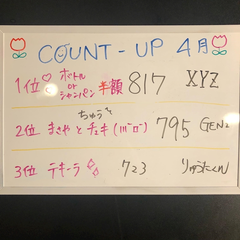 COUNT-UP 4月
1位♡ ボトル or シャンパン 半額 817 XYZ
ちゅう♡
2位 まさやとチェキ 795 GEN2
3位 テキーラ 723 りゅうたくん